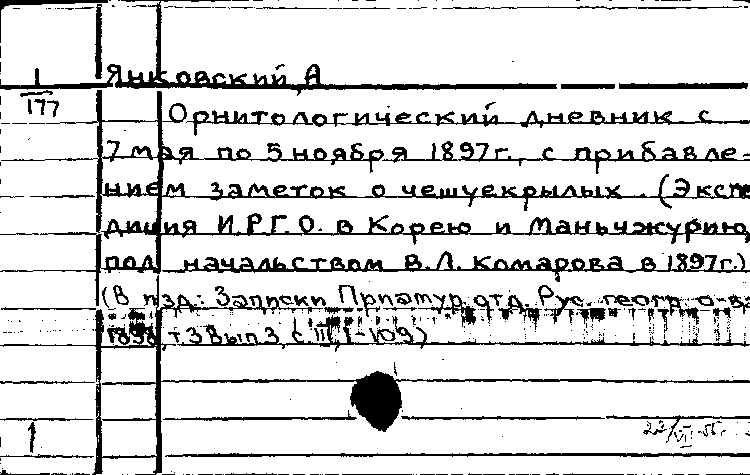 1
177
Янковский, А
Орнитологический дневник с
7 мая по 5 ноября 1897г., с прибавле-
нием заметок о чешуекрылых. (Экспе
диция И.Р.Г.О. в Корею и Маньчжурию,
под начальством В.Л. Комарова в 1897г.)
(В изд.: Записки Приамур. отд. Рус. геогр. о-ва
1898, т.3 вып 3, с. III, 1-109)
1
22/VII-55г.